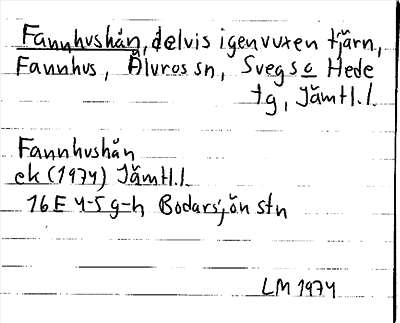 Fannhushån, delvis igenvuxen tjärn,
Fannhus, Älvros sn, Svegs o Hede
tg, Jämtl.l.
Fannhushån
ek (1974) Jämtl.l.
16E 4-5 g-h Bodarsjön stn
LM 1974